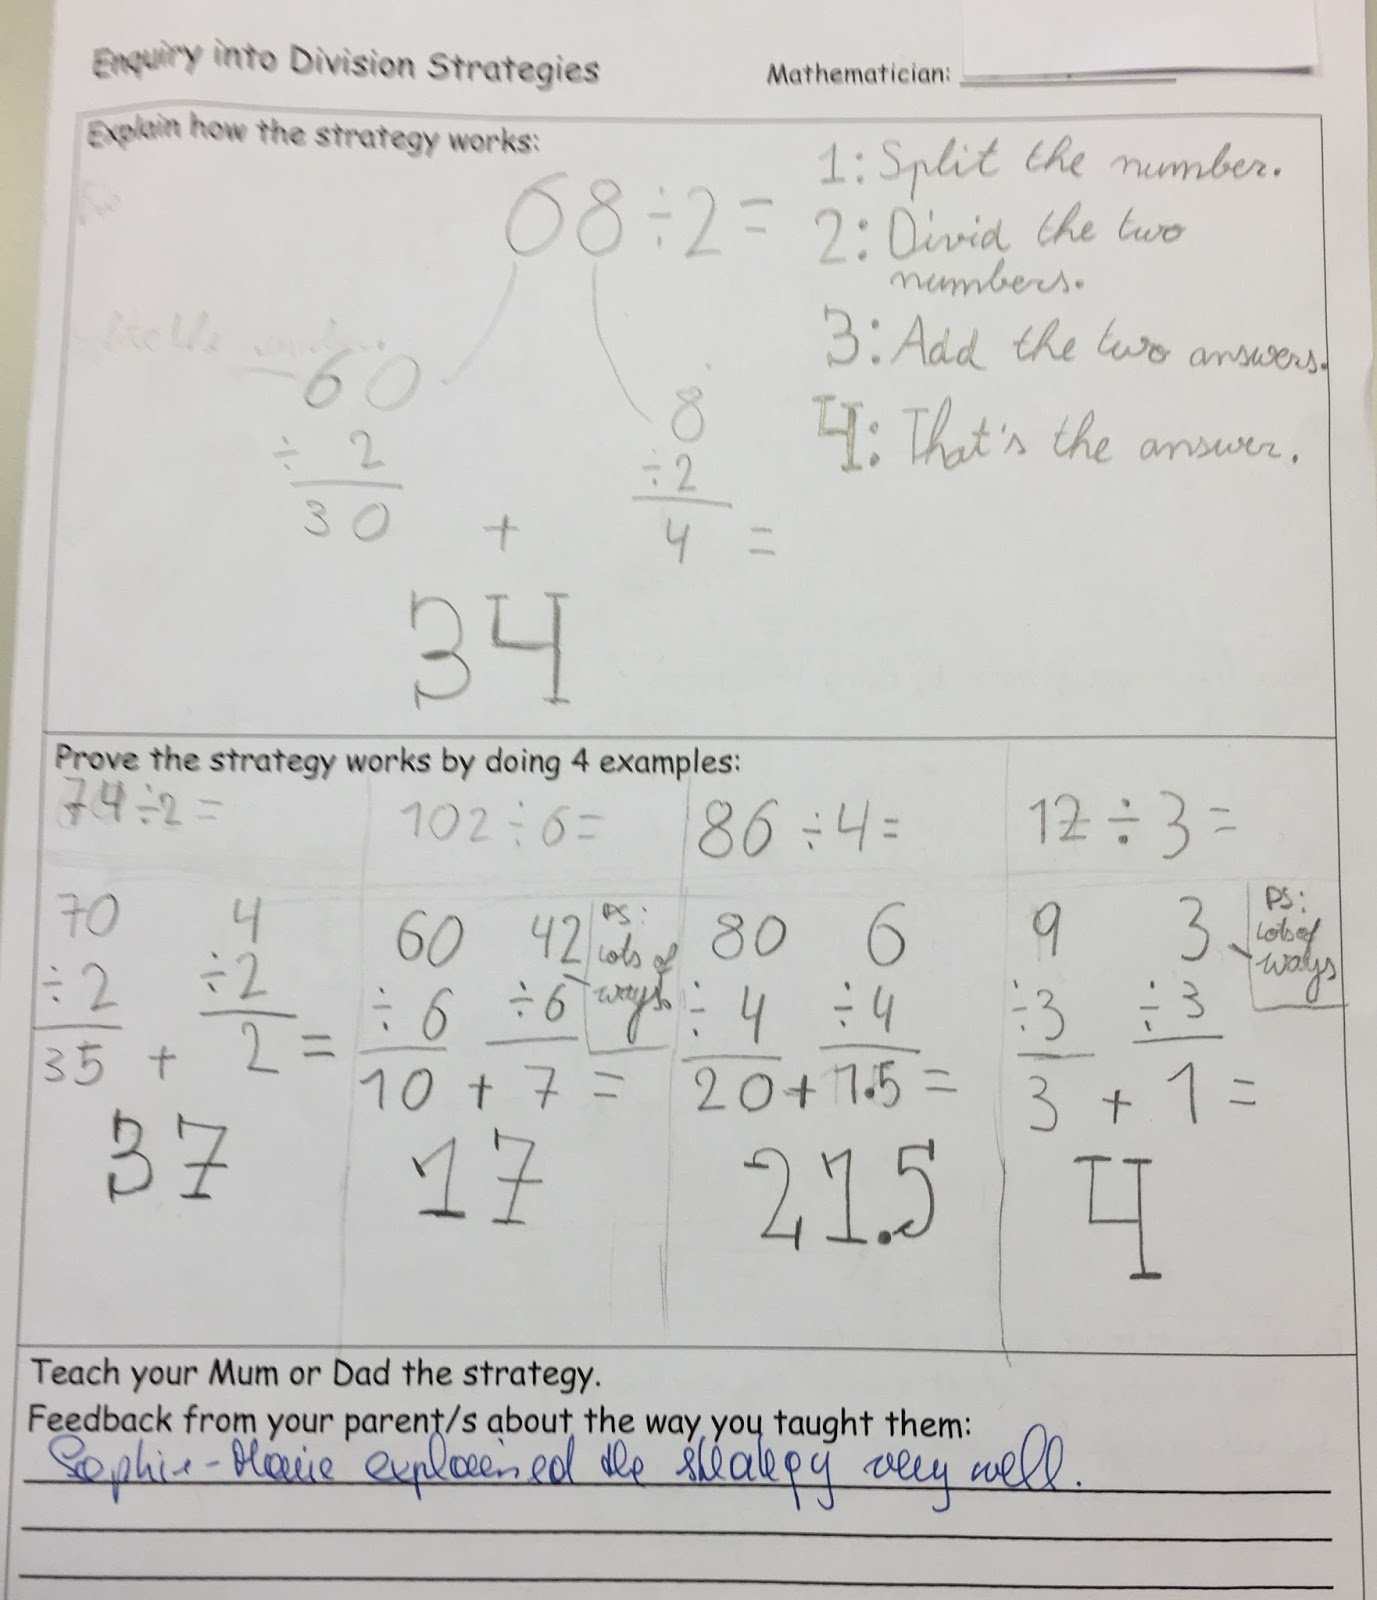 Enquiry into Division Strategies
Mathematician:
Explain how the strategy works:
68 ÷ 2 =
60
÷ 2
30
+
8
÷ 2
4
=
34
1: Split the number.
2: Divid the two
numbers.
3: Add the two answers.
4: That's the answer.
Prove the strategy works by doing 4 examples:
74 ÷ 2 =
70 4
÷ 2 ÷ 2
35 + 2 =
37
102 ÷ 6 =
60 42
÷ 6 ÷ 6
10 + 7 =
17
PS:
Lots of
ways.
86 ÷ 4 =
80 6
÷ 4 ÷ 4
20 + 1.5 =
21.5
12 ÷ 3 =
9 3
÷ 3 ÷ 3
3 + 1 =
4
PS:
Lots of
ways
Teach your Mum or Dad the strategy.
Feedback from your parent/s about the way you taught them:
Sophie-Marie explained the strategy very well.